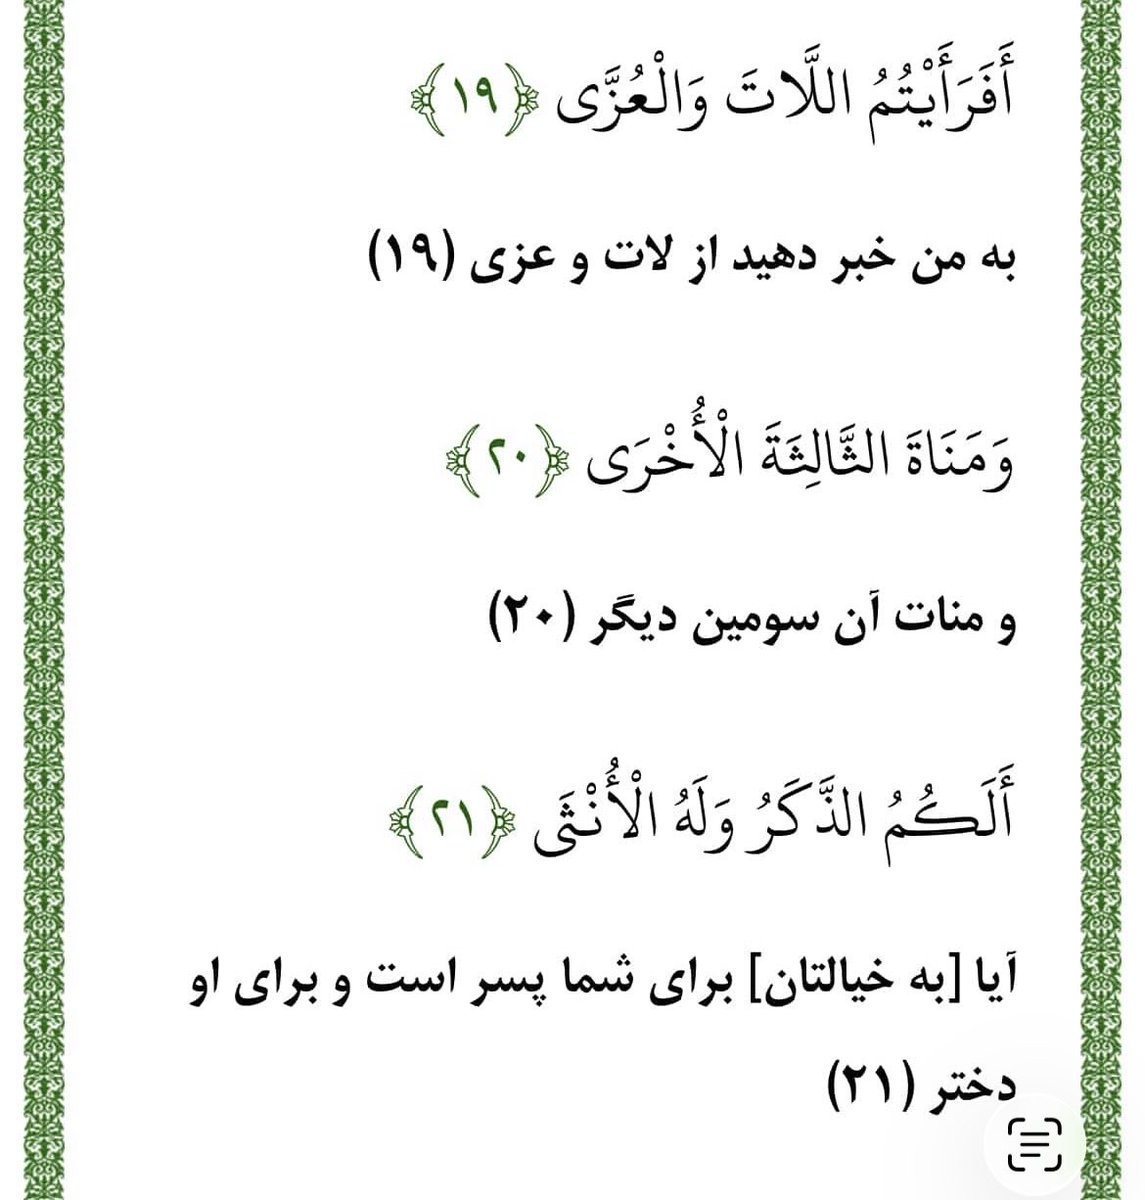 أَفَرَأَيْتُمُ اللَّاتَ وَالْعُزَّى ﴿۱۹﴾
به من خبر دهید از لات و عزی (۱۹)
وَمَنَاةَ الثَّالِثَةَ الْأُخْرَى ﴿۲۰﴾
و منات آن سومین دیگر (۲۰)
أَلَكُمُ الذَّكَرُ وَلَهُ الْأُنْثَى ﴿۲۱﴾
آیا [به خیالتان] برای شما پسر است و برای او
دختر (۲۱)